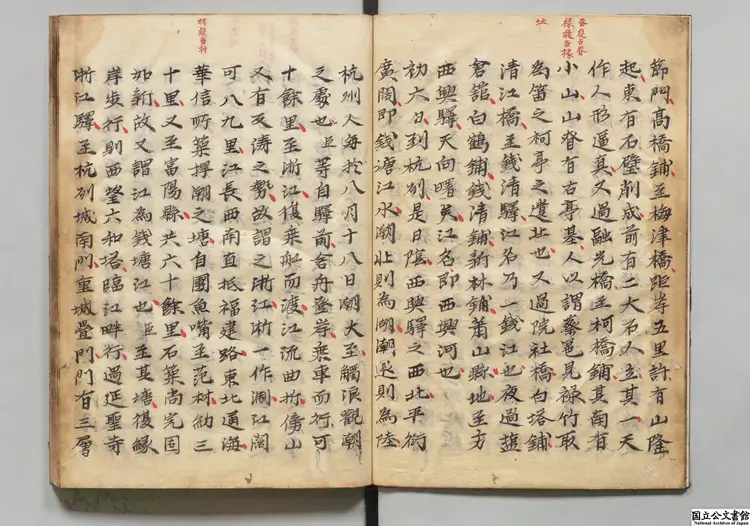 禄疑當椽
址
節門髙橋鋪至梅津橋距岸五里許有山隆
起東有石壁削成前有二大石人立其一天
作人形逼真又過融光橋至柯橋鋪其南有
小山山脊有古亭基人以謂蔡邕見禄竹取
為笛之柯亭之遺址也又過院社橋白塔鋪
清江橋至錢清驛江名乃一錢江也夜過塩
倉舘白鶴鋪錢清鋪新林鋪蕭山縣地至方
西興驛天向曙矣江名即西興河也
初六日到杭州是日陰西興驛之西北平衍
廣闊即錢塘江水潮壯則為湖潮退則為陸
材疑當村
杭州人每於八月十八日潮大至觸浪觀潮
之處也臣等自驛前舍舟登岸乘車而行可
十餘里至浙江復乘船而渡江流曲折傍山
又有反濤之勢故謂之浙江浙一作淛江闊
可八九里江長西南直抵福建路東北通海
華信所築捍潮之塘自團魚嘴至范材約三
十里又至富陽縣共六十餘里石築尚完固
如新故又謂江為錢塘江也臣至其塘復縁
岸步行則西望六和塔臨江畔行過延聖寺
浙江驛至杭州城南門重城疊門門有三層
国立公文書館
National Archives of Japan